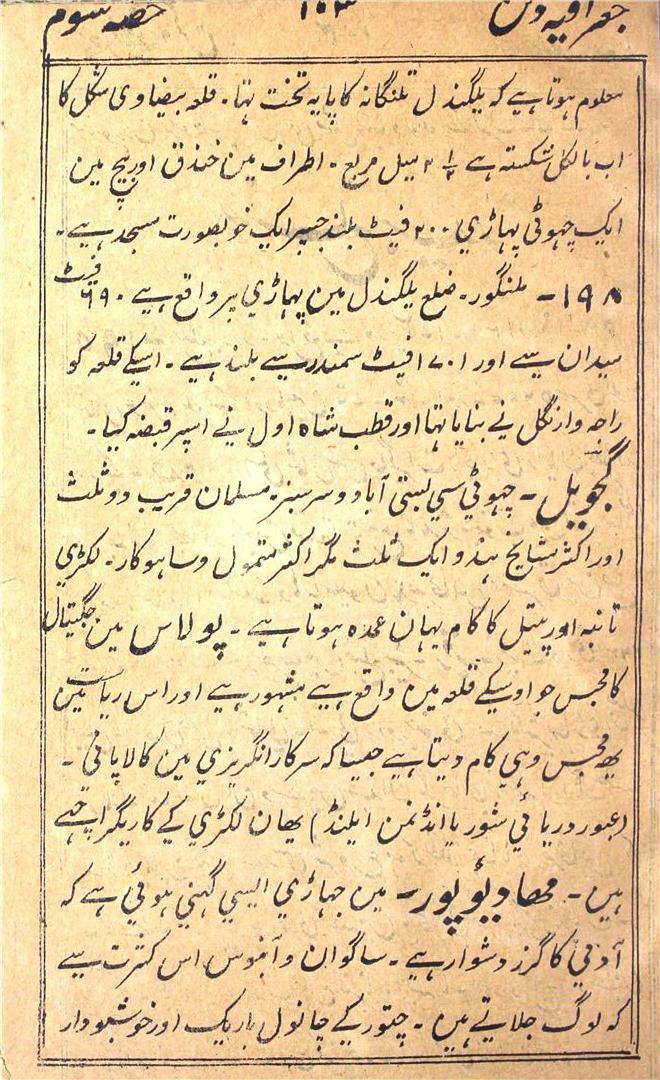 حصہ سوم
معلوم ہوتا ہے کہ یلگندل تلنگانہ کا پایہ تخت تہا ۔ قلعہ بیضاوی شکل کا
اب بالکل شکستہ ہے ۲½ میل مربع ۔ اطراف مین خندق اور بیچ مین
ایک چہوٹی پہاڑی ۲۰۰ فیٹ بلند جسپر ایک خوبصورت مسجد ہے ۔
۱۹۸ ۔ ملنگور ۔ ضلع یلگندل مین پہاڑی پر واقع ہے ۶۹۰ فیٹ
میدان سے اور ۱۷۰۱ فیٹ سمندر سے بلند ہے ۔ اسکے قلعہ کو
راجہ وارنگل نے بنایا تہا اور قطب شاہ اول نے اسپر قبضہ کیا ۔
گجویل ۔ چہوٹی سی بستی آباد و سرسبز ۔ مسلمان قریب دو ثلث
اور اکثر مشایخ ہندو ایک ثلث مگر اکثر متمول و ساہوکار ۔ لکڑی
تانبہ اور پیتل کا کام یہان عمدہ ہوتا ہے ۔ پولاس مین جگتیال
کا محبس جو اوسکے قلعہ مین واقع ہے مشہور ہے اور اس ریاست مین
یہ محبس وہی کام دیتا ہے جیسا کہ سرکار انگریزی مین کالا پانی ۔
(عبور دریائی شور یا انڈمن ایلنڈ) یہان لکڑی کے کاریگر اچہے
ہین ۔ مہادیو پور ۔ مین جہاڑی ایسی گہنی ہوئی ہے کہ
آدمی کا گزر دشوار ہے ۔ ساگوان و آبنوس اس کثرت سے
کہ لوگ جلاتے ہین ۔ چتور کے چانول باریک اور خوشبودار